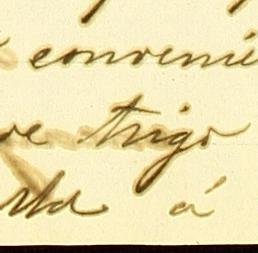 convenie
de trigo
á